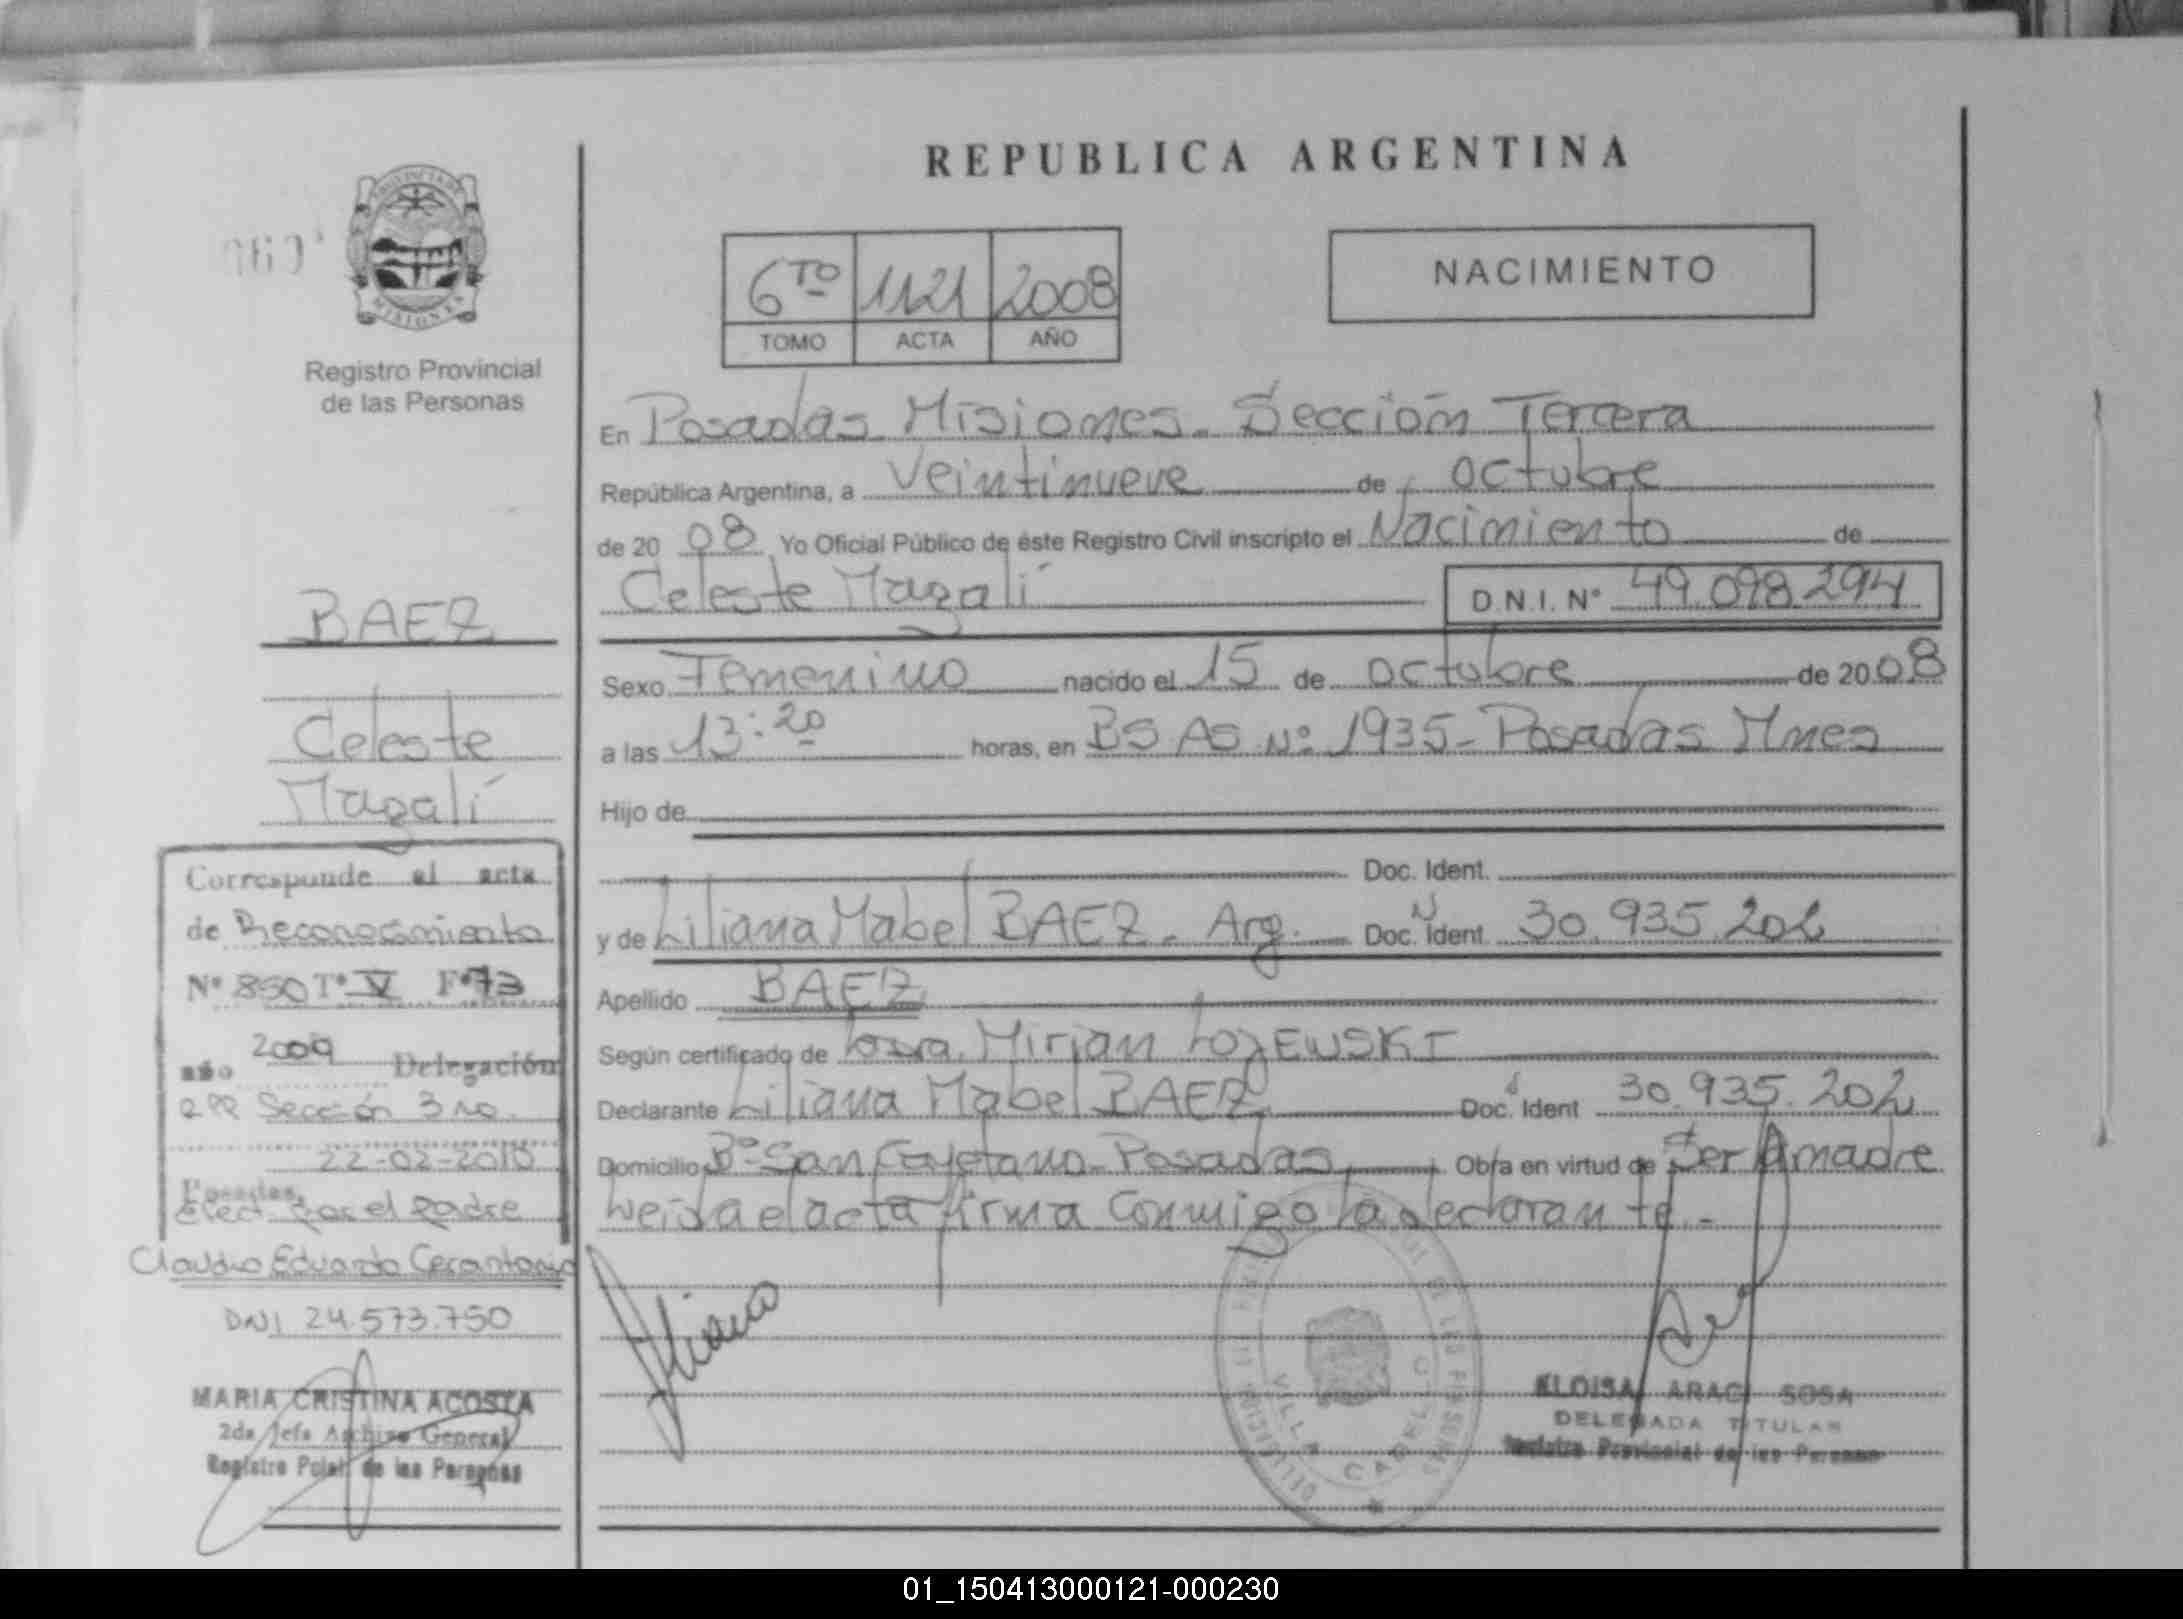 REPUBLICA ARGENTINA
PROVINCIA DE
MISIONES
Registro Provincial
de las Personas
6TO 1121 2008
TOMO ACTA AÑO
NACIMIENTO
En Posadas Misiones. Sección Tercera
República Argentina, a Veintinueve de octubre
de 20 08 Yo Oficial Público de éste Registro Civil inscripto el Nacimiento de
Celeste Magalí D.N.I. N° 49.098.294
Sexo Femenino nacido el 15 de octubre de 20 08
a las 13:20 horas, en BS AS Nº 1935- Posadas Mnes
Hijo de
Doc. Ident.
y de Liliana Mabel BAEZ. Arg. Doc. Ident. 30.935.202
Apellido BAEZ
Según certificado de Mirian LOJEWSKI
Declarante Liliana Mabel BAEZ Doc. Ident 30.935.202
Domicilio Bº San Cayetano Posadas Obra en virtud de Ser la madre
Leida el acta firma Conmigo la declarante.-
Liliana
VILLA CABELLO
ELOISA ARACI SOSA
DELEGADA TITULAR
Registro Provincial de las Personas
BAEZ
Celeste
Magalí
Corresponde al acta
de Reconocimiento
N° 850 T° V F° 73
año 2009 Delegación
Sección 3ra.
22-02-2010
Posadas,
Efect. por el padre
Claudio Eduardo Cerantonio
DNI 24.573.750
MARIA CRISTINA ACOSTA
2da Jefa Archivo General
Registro Pcial. de las Personas
01_150413000121-000230